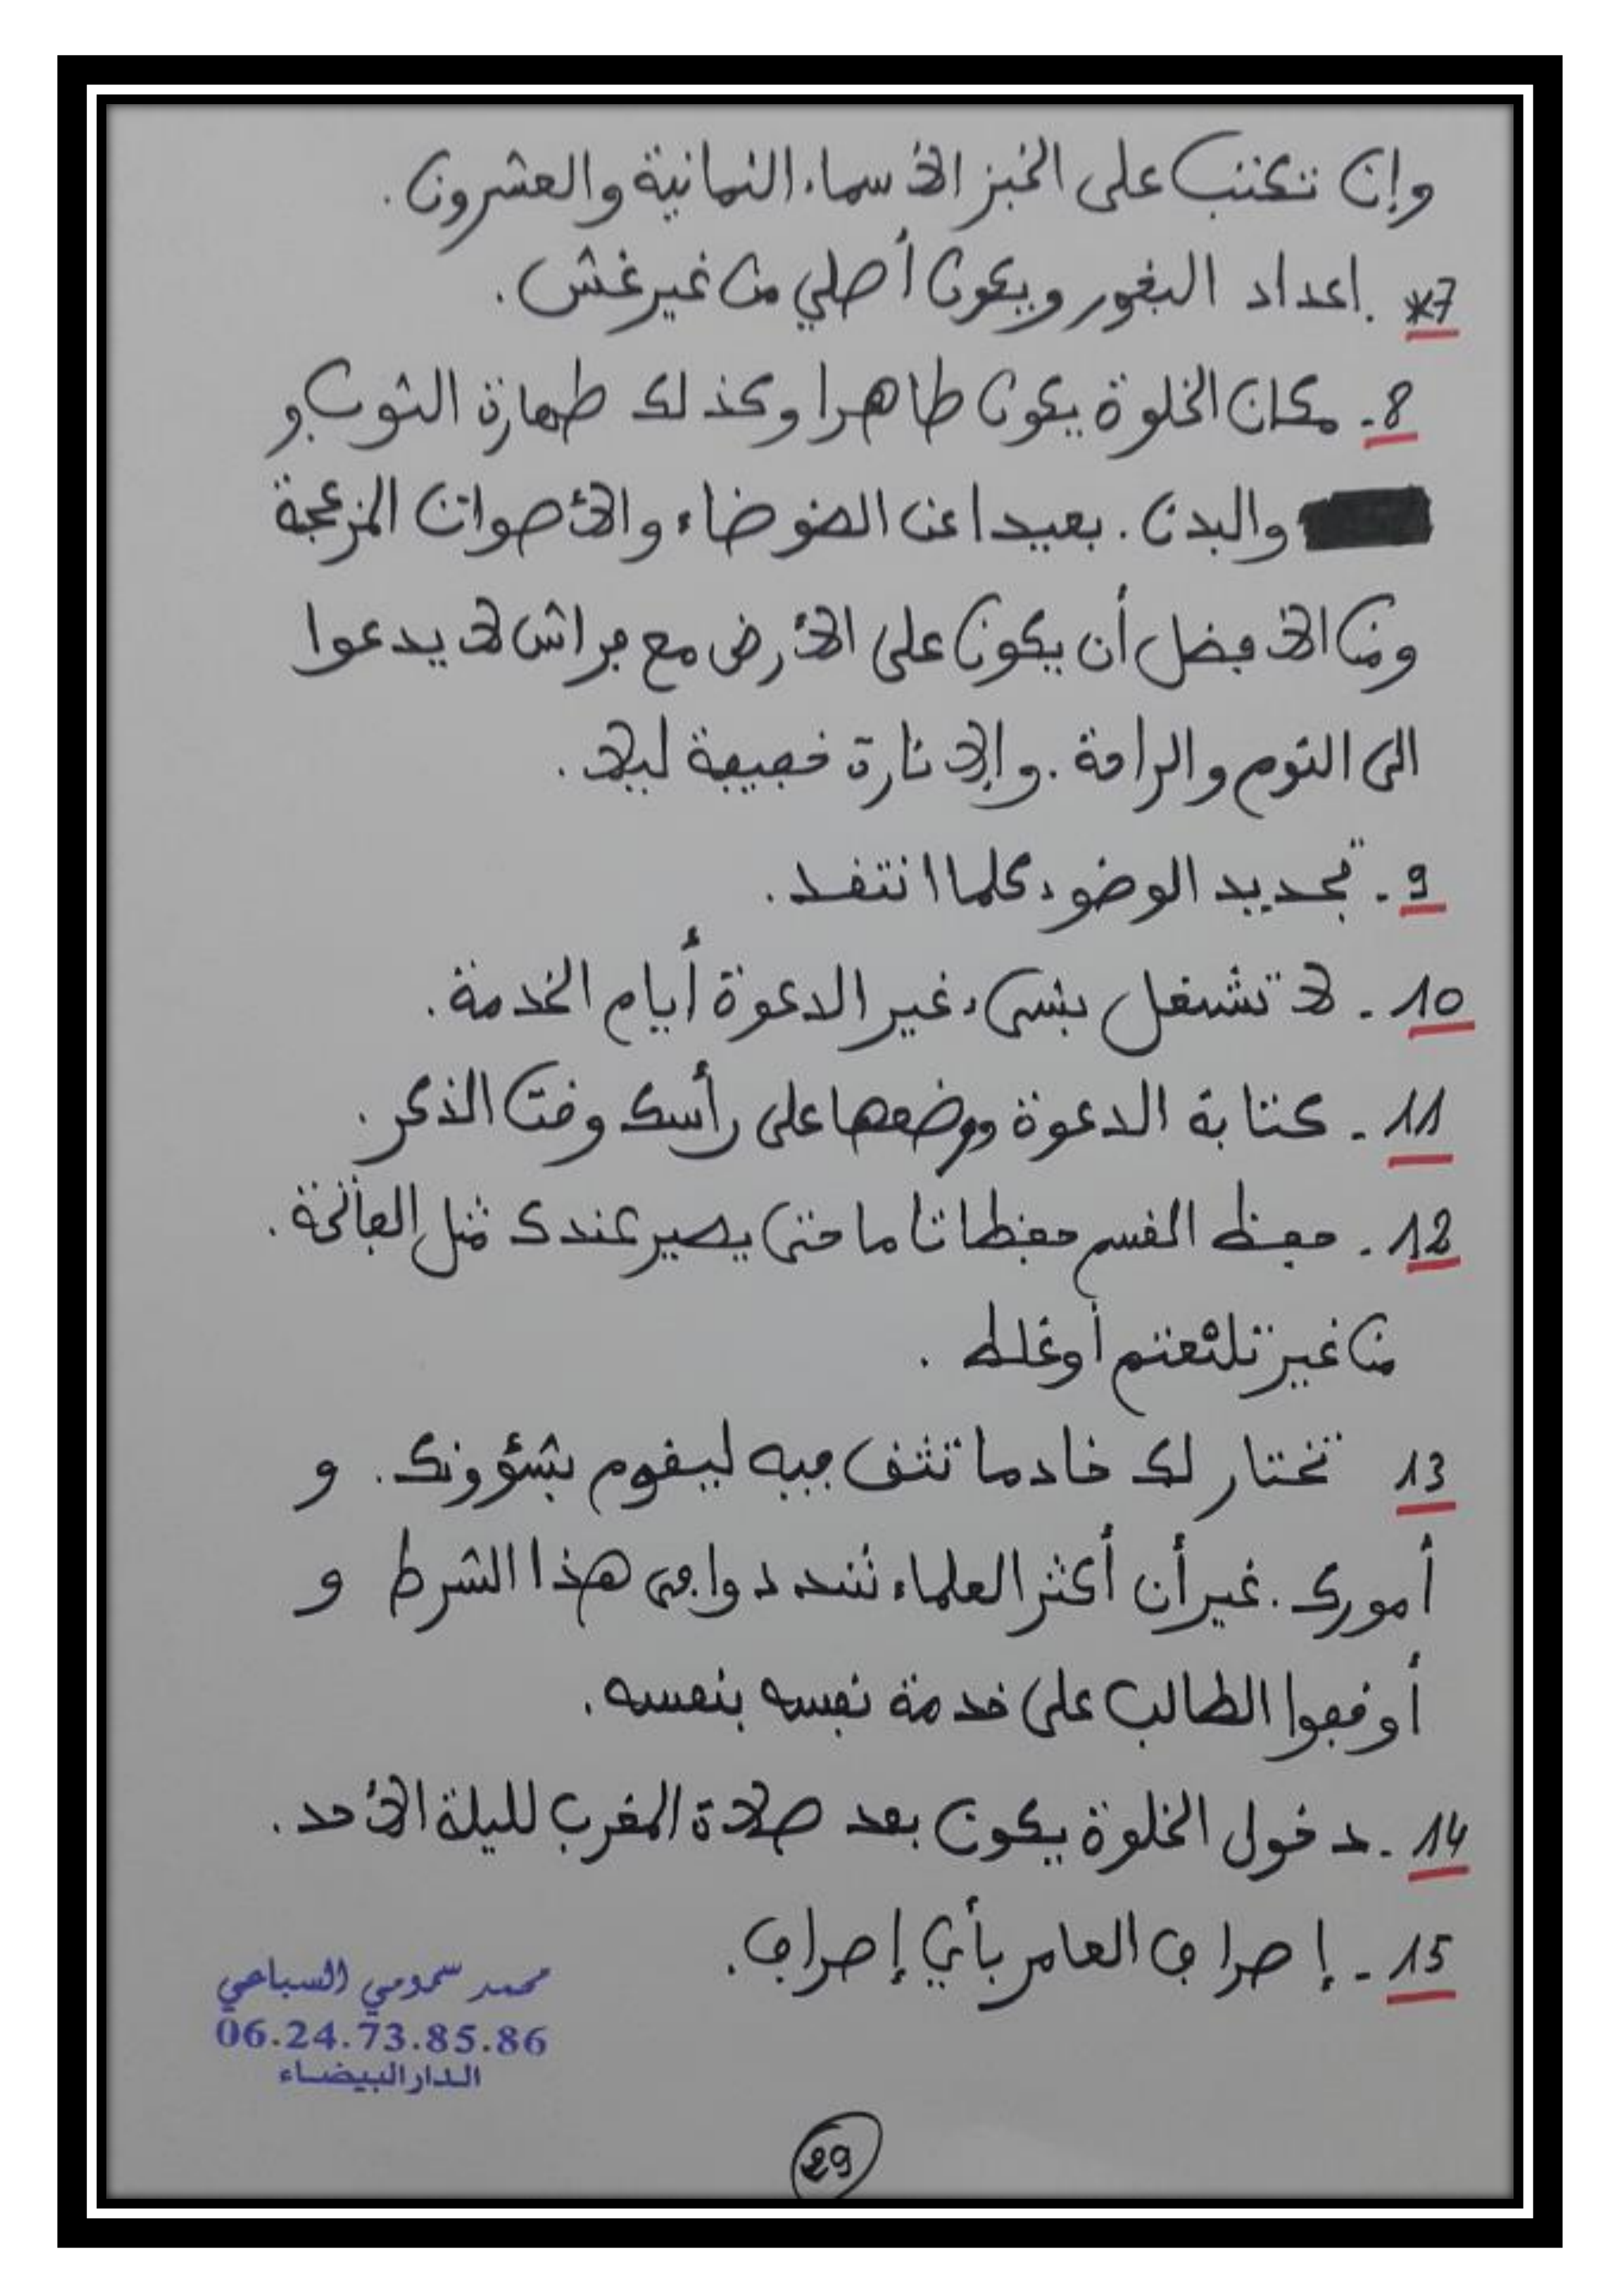 وإن تكتب على الخبز الأسماء الثمانية والعشرون.
7* .اعداد البخور ويكون أصلي من غير غش.
8- مكان الخلوة يكون طاهرا وكذلك طهارة الثوب و
والبدن. بعيدا عن الضوضاء والأصوات المزعجة
ومن الافضل أن يكون على الأرض مع فراش لا يدعوا
الى النوم والراحة. والإنارة خفيفة ليلا.
9- تجديد الوضوء كلما انتقد.
10- لا تشتغل بشيء غير الدعوة أيام الخدمة.
11- كتابة الدعوة ووضعها على رأسك وقت الذكر.
12- حفظ القسم حفظا تاما حتى يصير عندك مثل الفاتحة.
من غير تلثعتم أو غلط.
13 تختار لك خادما تثق فيه ليقوم بشؤونك. و
أمورك. غير أن أكثر العلماء شددوا في هذا الشرط و
أوقفوا الطالب على خدمة نفسه بنفسه.
14- دخول الخلوة يكون بعد صلاة المغرب لليلة الأحد.
15- إصراف العامر بأي إصراف.
محمد سمومي السباعي
06.24.73.85.86
الدار البيضاء
29